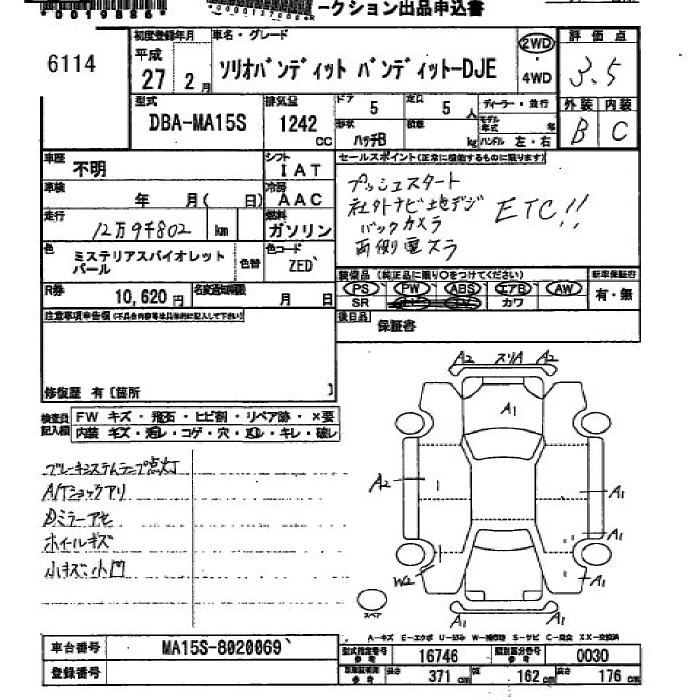 *0019886*
ークション出品申込書
6114
初度登録年月
平成
27 2月
車名・グレード
ソリオバンディット バンディットーDJE
2WD
・
4WD
評価点
3.5
型式
DBA-MA15S
排気量
1242
cc
ドア 5
定員 5人
形状 ハッチB
積載 kg
ディーラー・並行
モデル年式 年
ハンドル 左・右
外装 内装
B C
車歴 不明
シフト
I AT
車検 年 月( 日)
冷房
AAC
走行 12万9千802 km
燃料
ガソリン
色 ミステリアスバイオレット
パール
色替
色コード
ZED
R券 10,620円
名変通知期限 月 日
セールスポイント(正常に機能するものに限ります)
プッシュスタート
社外ナビ地デジ
バックカメラ
両側電スラ
ETC!!
装備品 (純正品に限り○をつけてください)
新車保証書
PS PW ABS エアB AW
有・無
SR カワ
後日品 保証書
注意事項申告欄(不具合内容等は具体的に記入して下さい)
修復歴 有〔箇所 〕
検査員記入欄
FW キズ・飛石・ヒビ割・リペア跡・×要
内装 キズ・汚れ・コゲ・穴・凹ル・キレ・破レ
ブレーキシステムランプ点灯
A/Tショックアリ
Dミラーアセ
ホイールキズ
小キズ、小凹
A2 スリA A2
A1
A2
A1 A1
A1
W2
A1
A1
スペア
A-キズ E-エクボ U-凹み W-補修跡 S-サビ C-腐食 XX-交換済
車台番号 MA15S-8020069
登録番号
型式指定番号 参考 16746
類別区分番号 参考 0030
車車証明用 参考 長さ 371cm 幅 162cm 高さ 176cm